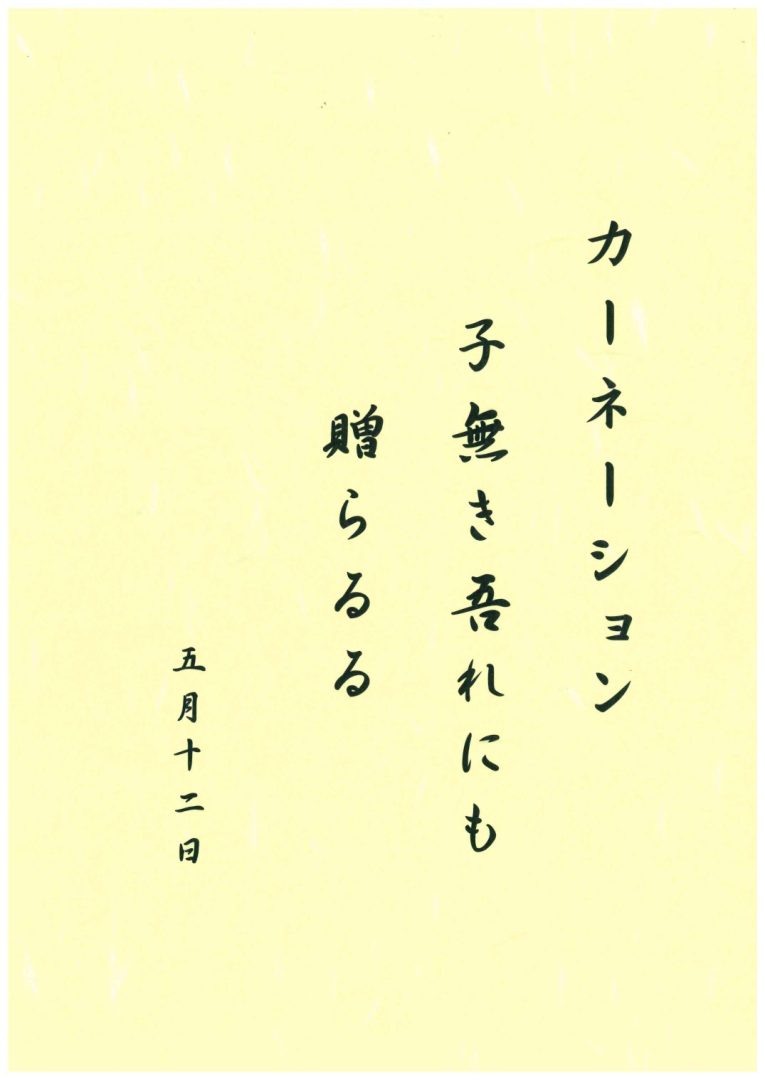 カーネーション
子無き吾れにも
贈らるる
五月十二日